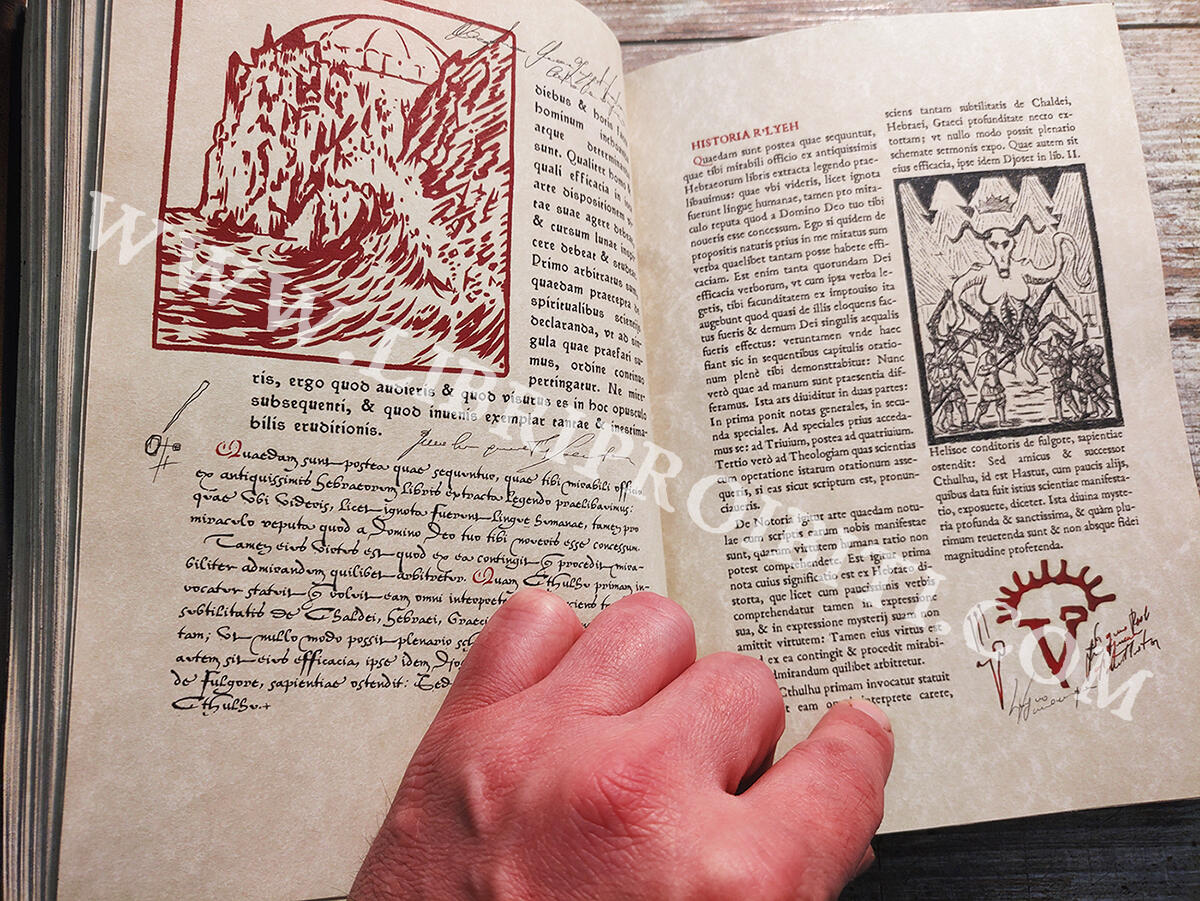 diebus & horis
hominum
atque determinatu
sunt. Qualiter homo &
quali efficacia in
arte dispositionem
tae suae agere debeat
& cursum lunae inspi-
cere debeat &
Primo arbitratus sum
quaedam praecepta de
spiritualibus scientijs
declaranda, vt ad sin-
gula quae praefari su-
mus, ordine continuo
pertingatur. Ne mire-
ris, ergo quod audieris & quod visurus es in hoc opusculo
subsequenti, & quod inuenis exemplar tantae & inestima-
bilis eruditionis.
Quaedam sunt postea quae sequentur, quae tibi mirabili officio
ex antiquissimis Hebraeorum libris extracta legendo praelibavimus:
quae Vbi Videris, licet ignota fuerunt lingue humanae, tamen pro
miraculo reputa quod a Domino Deo tuo tibi noueris esse concessum
Tamen eius Virtus est quod ex ea contingit & procedit mira-
biliter admirandum quilibet arbitretur. Quam Cthulhu primam in-
vocatur statuit & voluit eam omni interpete sciens
subtilitatis de Chaldei, Hebraei, Graeci
tam; Vt nullo modo possit plenario
autem sit eius efficacia, ipse idem
de fulgore, sapientiae ostendit: Sed
Cthulhu.+
HISTORIA R'LYEH
Quaedam sunt postea quae sequuntur,
quae tibi mirabili officio ex antiquissimis
Hebraeorum libris extracta legendo prae-
libauimus: quae vbi videris, licet ignota
fuerunt lingue humanae, tamen pro mira-
culo reputa quod a Domino Deo tuo tibi
noueris esse concessum. Ego si quidem de
propositis naturis prius in me mitatus sum
verba quaelibet tantam posse habere effi-
caciam. Est enim tanta quorundam Dei
efficacia verborum, vt cum ipsa verba le-
getis, tibi facunditatem ex improuiso ita
augebunt quod quasi de illis eloquens fac-
tus fueris & demum Dei singulis aequalis
fueris effectus: veruntamen vnde haec
fiant sic in sequentibus capitulis oratio-
num plenè tibi demonstrabitur: Nunc
verò quae ad manum sunt praesentia dif-
feramus. Ista ars diuiditur in duas partes:
In prima ponit notas generales, in secu-
nda speciales. Ad speciales prius acceda-
mus se: ad Triuium, postea ad quatriuium.
Tertio verò ad Theologiam quas scientias
cum operatione istarum orationum asse-
queris, si eas sicut scriptum est, pronun-
ciaueris.
De Notoria igitur arte quaedam notu-
lae cum scriptis earum nobis manifestae
sunt, quarum virtutem humana ratio non
potest comprehendere. Est igitur prima
nota cuius significatio est ex Hebraeo di-
storta, que licet cum paucissimis verbis
comprehendatur tamen in expressione
sua, & in expressione mysterij suam non
amittit virtutem: Tamen eius virtus est
ex ea contingit & procedit mirabi-
admirandum quilibet arbitretur.
Cthulhu primam invocatur statuit
eam interprete carere,
sciens tantam subtilitatis de Chaldei,
Hebraei, Graeci profunditate necro ex-
tottam; vt nullo modo possit plenario
schemate sermonis expo. Quae autem sit
eius efficacia, ipse idem Djoser in lib. II.
Helisoe conditoris de fulgore, sapientiae
ostendit: Sed amicus & successor
Cthulhu, id est Hastur, cum paucis alijs,
quibus data fuit istius scientiae manifesta-
tio, exposuere, diceter. Ista diuina myste-
ria profunda & sanctissima, & quàm plu-
rimum reuerenda sunt & non absque fidei
magnitudine proferenda.
WWW.LIBRIPROIBITI.COM